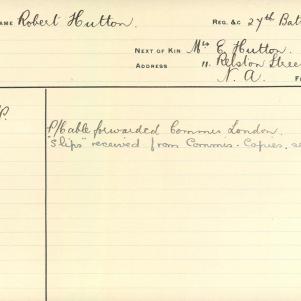 NAME Robert Hutton. REG. &C 27th Bat
NEXT OF KIN Mrs E. Hutton.
ADDRESS 11. Relston Stree
N. A.
P.
P/Cable forwarded Commis. London.
"Slips" received from Commis. Copies, se